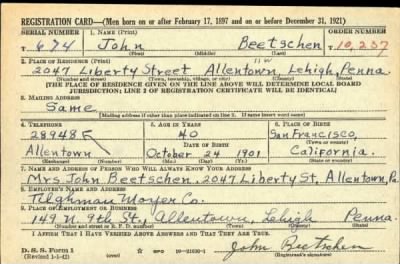 REGISTRATION CARD—(Men born on or after February 17, 1897 and on or before December 31, 1921)
SERIAL NUMBER 1. NAME (Print) ORDER NUMBER
T 674 John Beetschen T 10,237
(First) (Middle) (Last)
2. PLACE OF RESIDENCE (Print)
2047 Liberty Street Allentown, Lehigh, Penna.
(Number and street) (Town, township, village, or city) (County) (State)
[THE PLACE OF RESIDENCE GIVEN ON THE LINE ABOVE WILL DETERMINE LOCAL BOARD
JURISDICTION; LINE 2 OF REGISTRATION CERTIFICATE WILL BE IDENTICAL]
3. MAILING ADDRESS
Same
[Mailing address if other than place indicated on line 2. If same insert word same]
4. TELEPHONE 5. AGE IN YEARS 6. PLACE OF BIRTH
28948 40 San Francisco,
DATE OF BIRTH (Town or county)
Allentown October 24 1901 California.
(Exchange) (Number) (Mo.) (Day) (Yr.) (State or country)
7. NAME AND ADDRESS OF PERSON WHO WILL ALWAYS KNOW YOUR ADDRESS
Mrs John Beetschen, 2047 Liberty St, Allentown, Pa.
8. EMPLOYER'S NAME AND ADDRESS
Tilghman Moyer Co.
9. PLACE OF EMPLOYMENT OR BUSINESS
149 N. 9th St., Allentown, Lehigh Penna.
(Number and street or R. F. D. number) (Town) (County) (State)
I AFFIRM THAT I HAVE VERIFIED ABOVE ANSWERS AND THAT THEY ARE TRUE.
D. S. S. Form 1
(Revised 1-1-42) John Beetschen
(Registrant's signature)